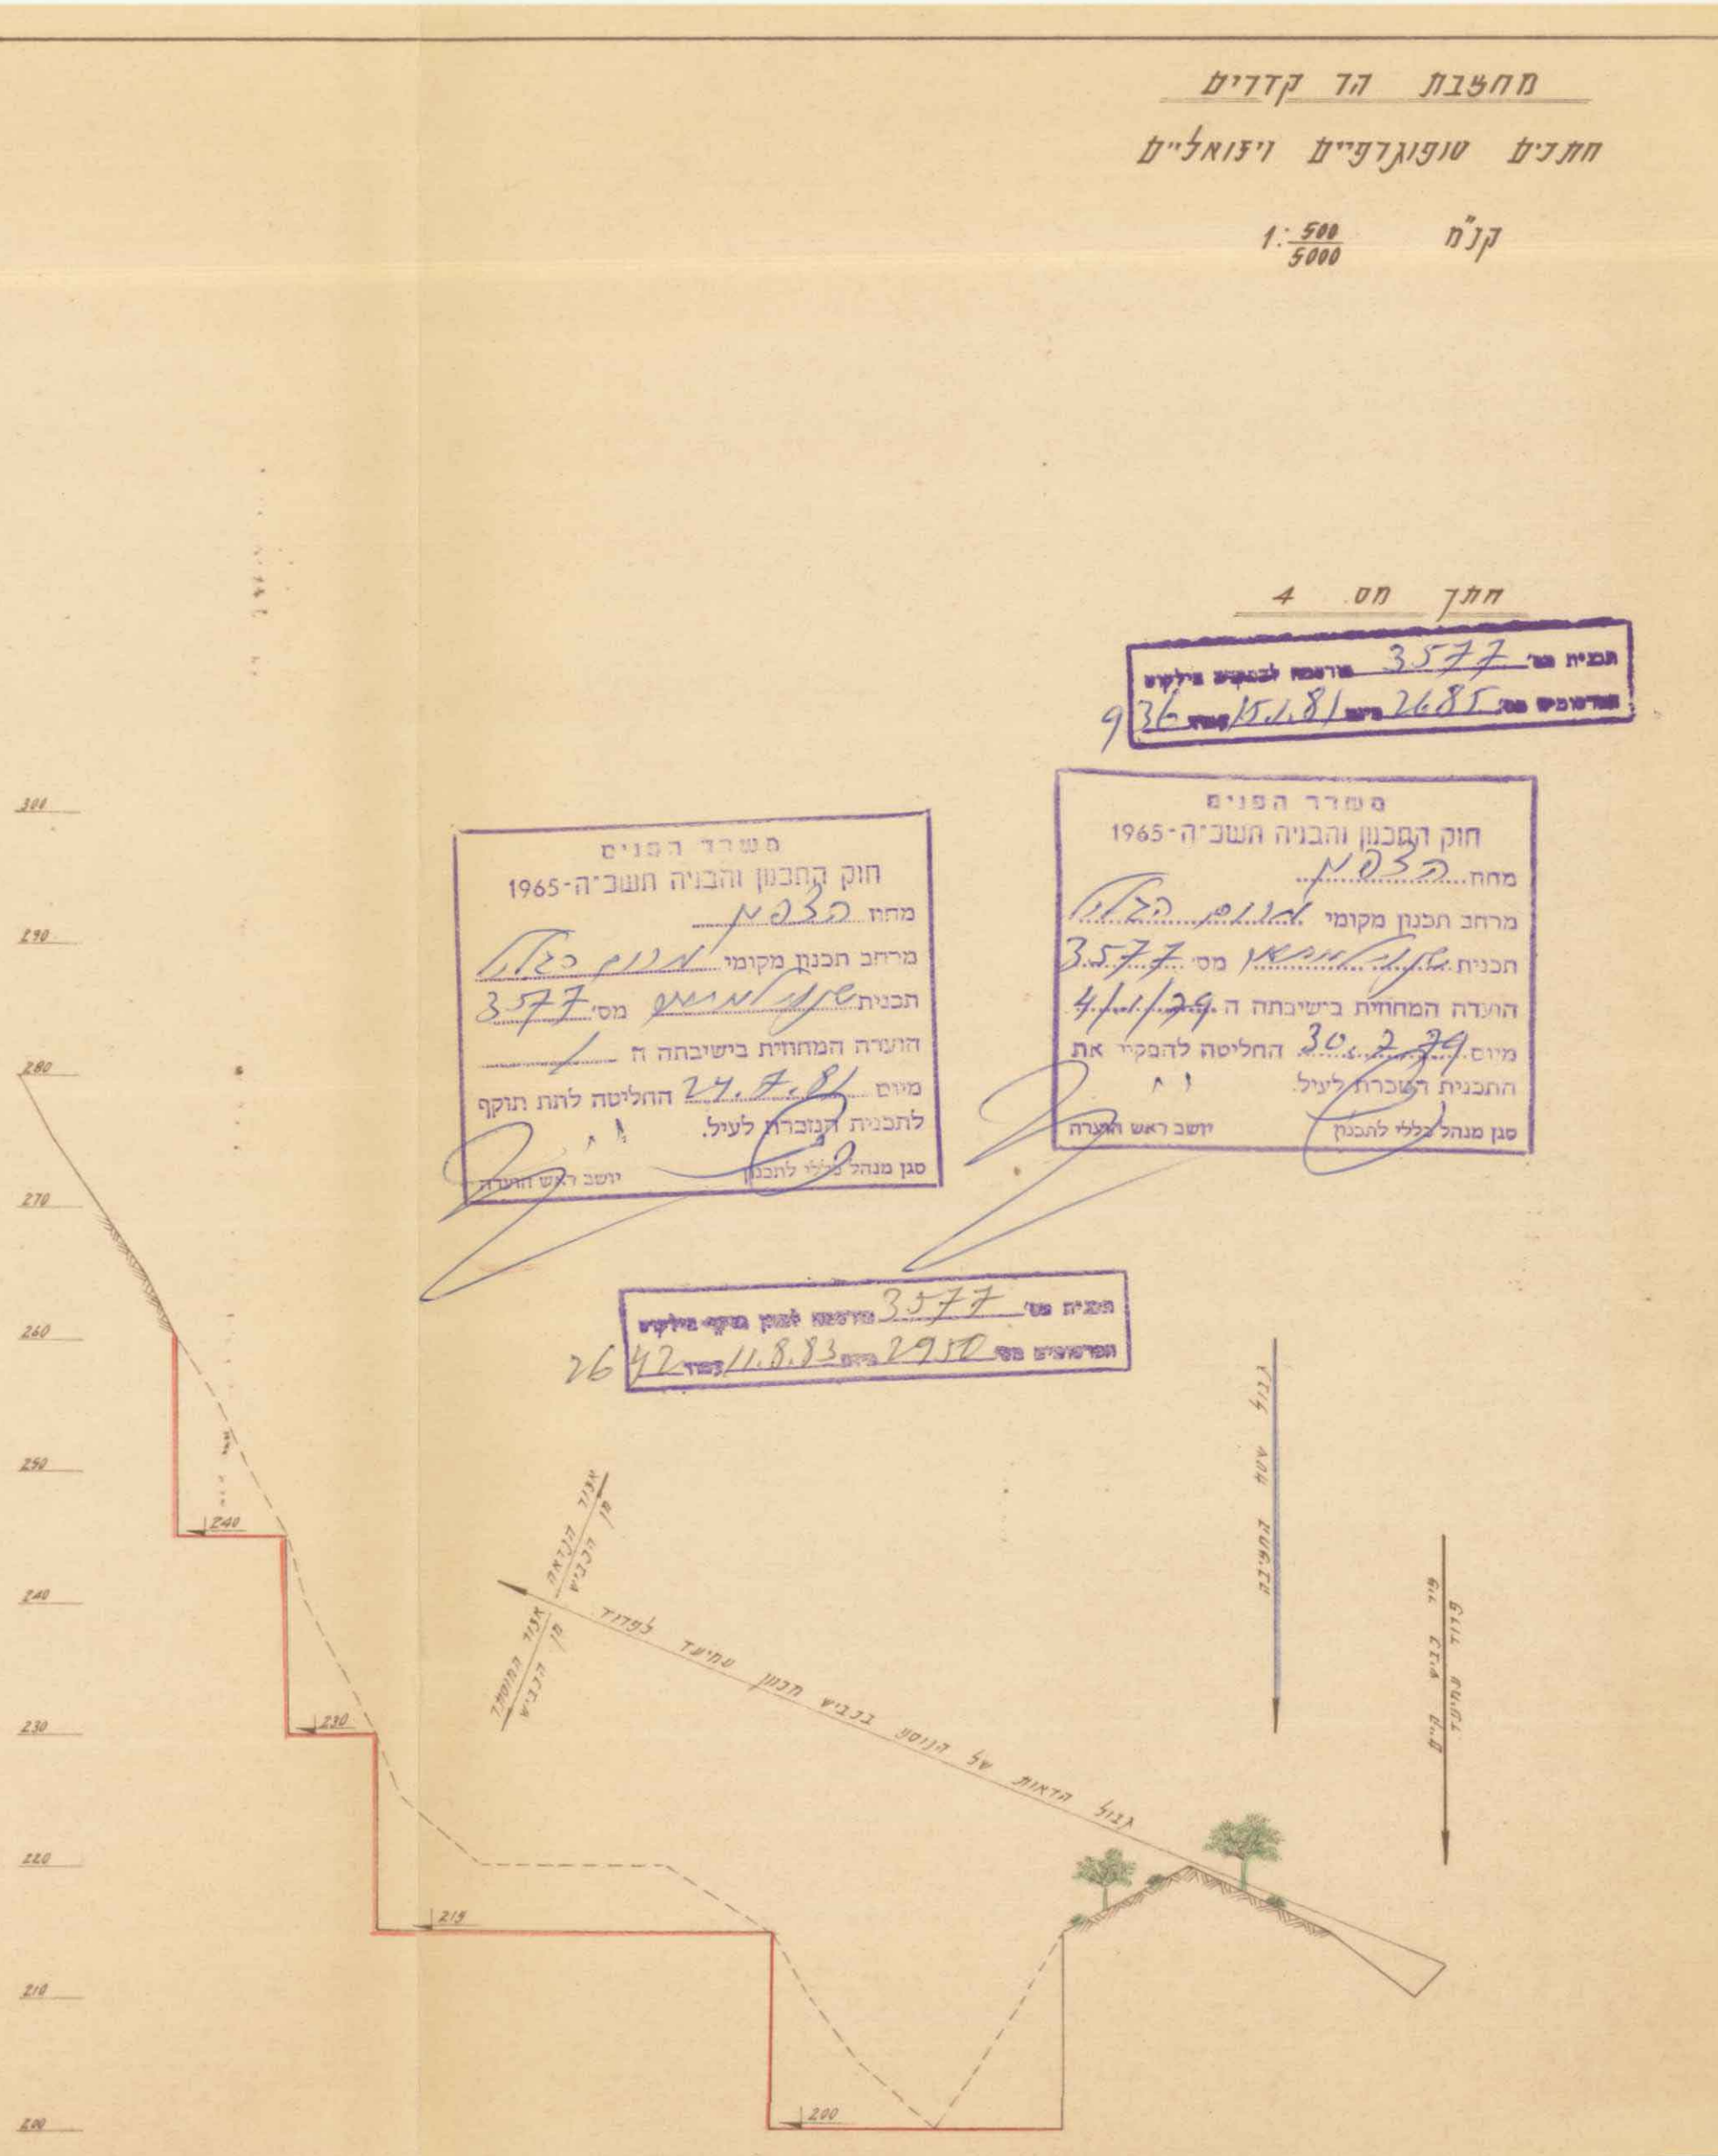 מחצבת הר קדרים
חתכים טופוגרפיים ויזואליים
קנ"מ 1:500/5000
חתך מס 4
תכנית מס' 3577 פורסמה להפקדה בילקוט
הפרסומים מס' 2685 מיום 15.1.81 עמוד 936
משרד הפנים
חוק התכנון והבניה תשכ"ה-1965
מחוז הצפון
מרחב תכנון מקומי מרום הגליל
תכנית מס' 3577
הועדה המחוזית בישיבתה ה
מיום 30.7.79 החליטה להפקיד את
התכנית הנזכרת לעיל.
סגן מנהל כללי לתכנון יושב ראש הועדה
משרד הפנים
חוק התכנון והבניה תשכ"ה-1965
מחוז הצפון
מרחב תכנון מקומי מרום הגליל
תכנית מס' 3577
הועדה המחוזית בישיבתה ה
מיום 27.7.81 החליטה לתת תוקף
לתכנית הנזכרת לעיל.
סגן מנהל כללי לתכנון יושב ראש הועדה
תכנית מס' 3577 פורסמה למתן תוקף בילקוט
הפרסומים מס' 2950 מיום 11.8.83 עמוד 2642
300
290
280
270
260
250
240
230
220
210
200
240
230
215
200
אזור הנראה
מן הכביש
אזור המוסתר
מן הכביש
גבול הראות של הנוסע בכביש תכנון עמיעד לפרוד
ציר כביש קיים
פרוד עמיעד